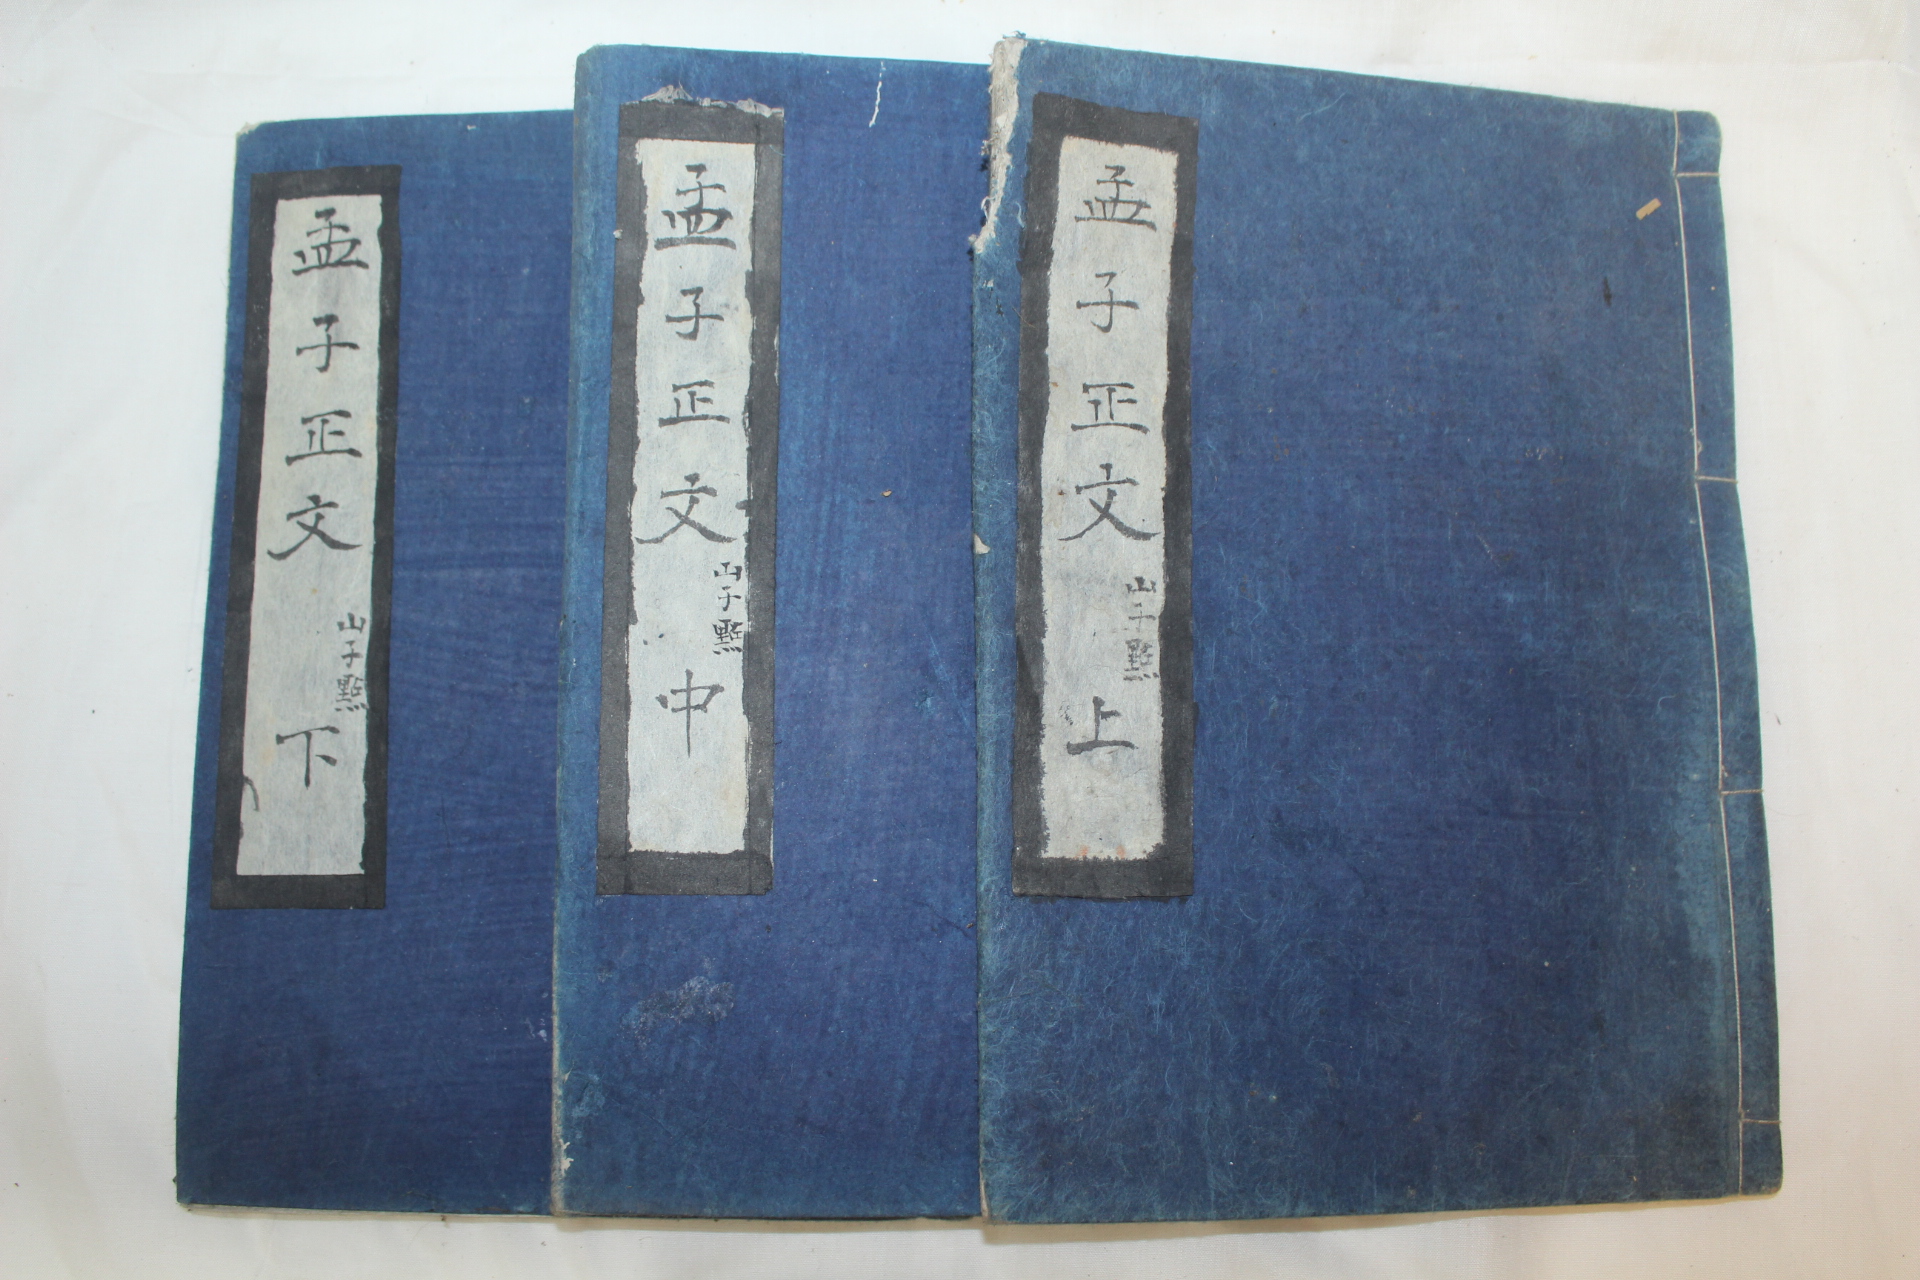 孟子正文 山子點 上
孟子正文 山子點 中
孟子正文 山子點 下